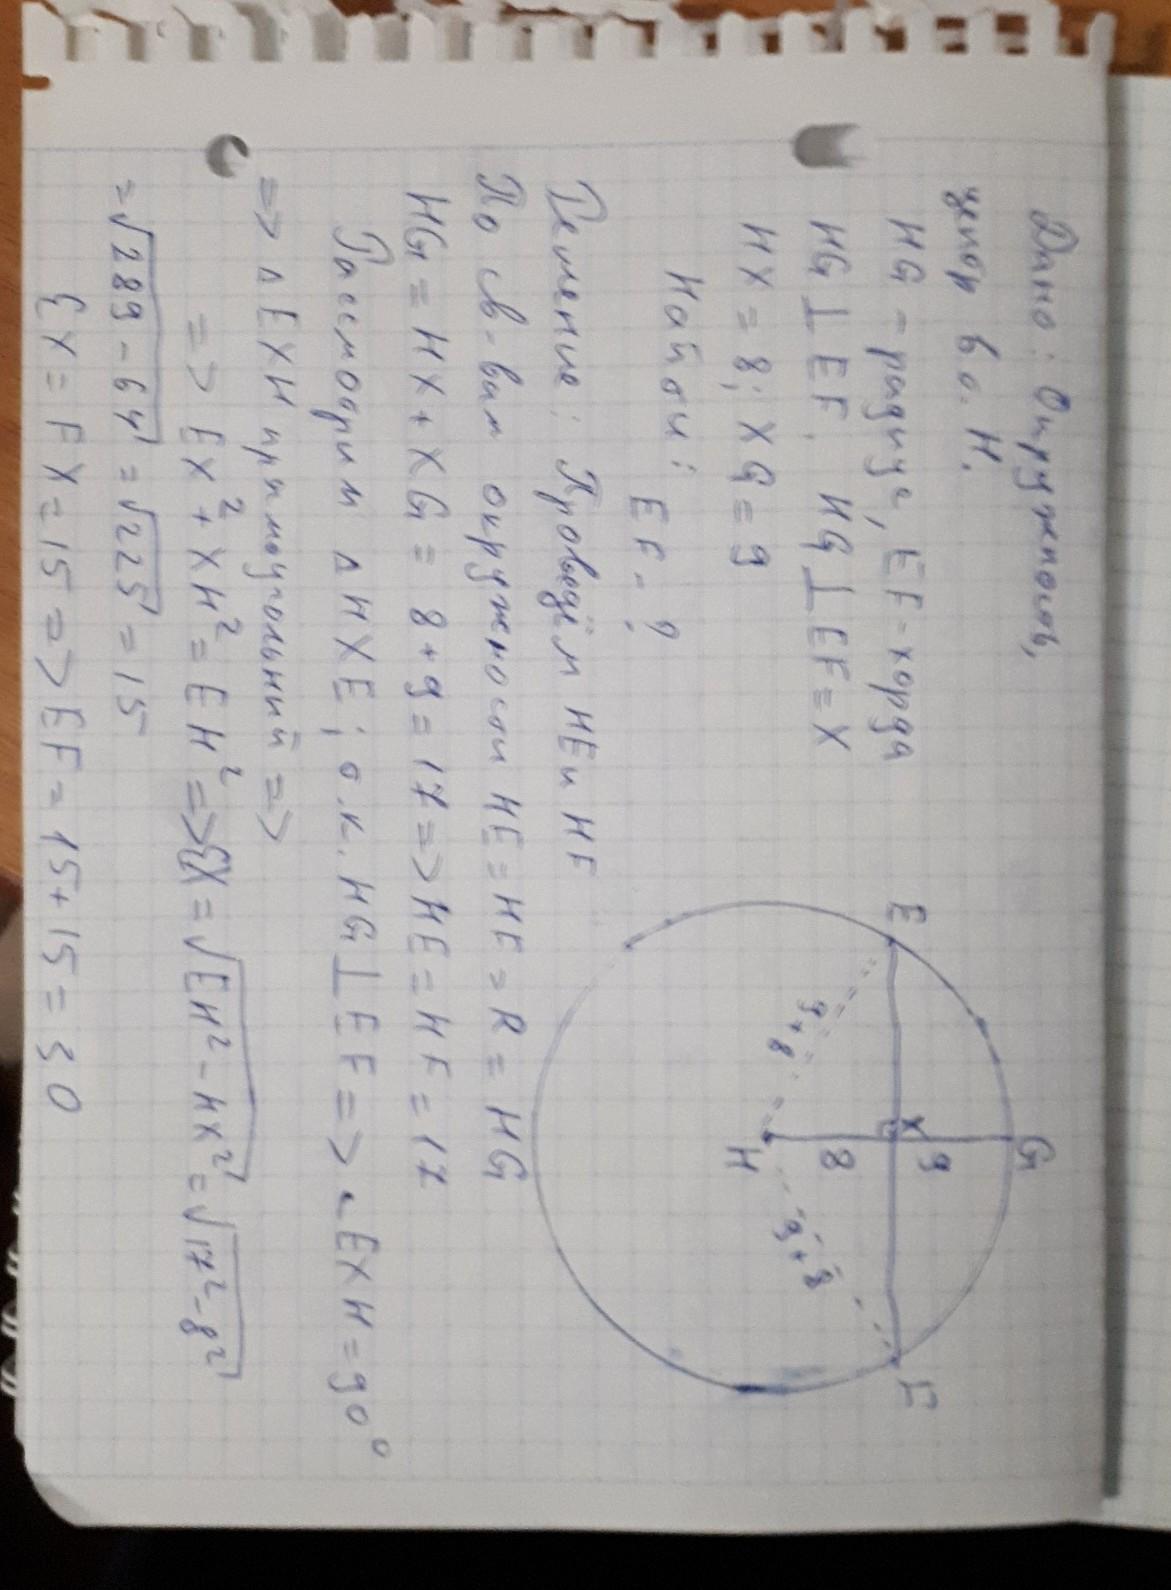 Дано: Окружность,
центр в т. H.
HG - радиус, EF - хорда
HG ⊥ EF. HG ⊥ EF = X
HX = 8; XG = 9
Найти:
EF - ?
E
G
F
X
H
8
9
9+8
9+8
Решение: Проведём HE и HF
По св-вам окружности HE = HF = R = HG
HG = HX + XG = 8+9 = 17 => HE = HF = 17
Рассмотрим △ HXE; т.к. HG ⊥ EF => ∠EXH = 90°
=> △ EXH прямоугольный =>
=> EX² + XH² = EH² => EX = √EH² - HX² = √17² - 8²
= √289 - 64 = √225 = 15
EX = FX = 15 => EF = 15 + 15 = 30